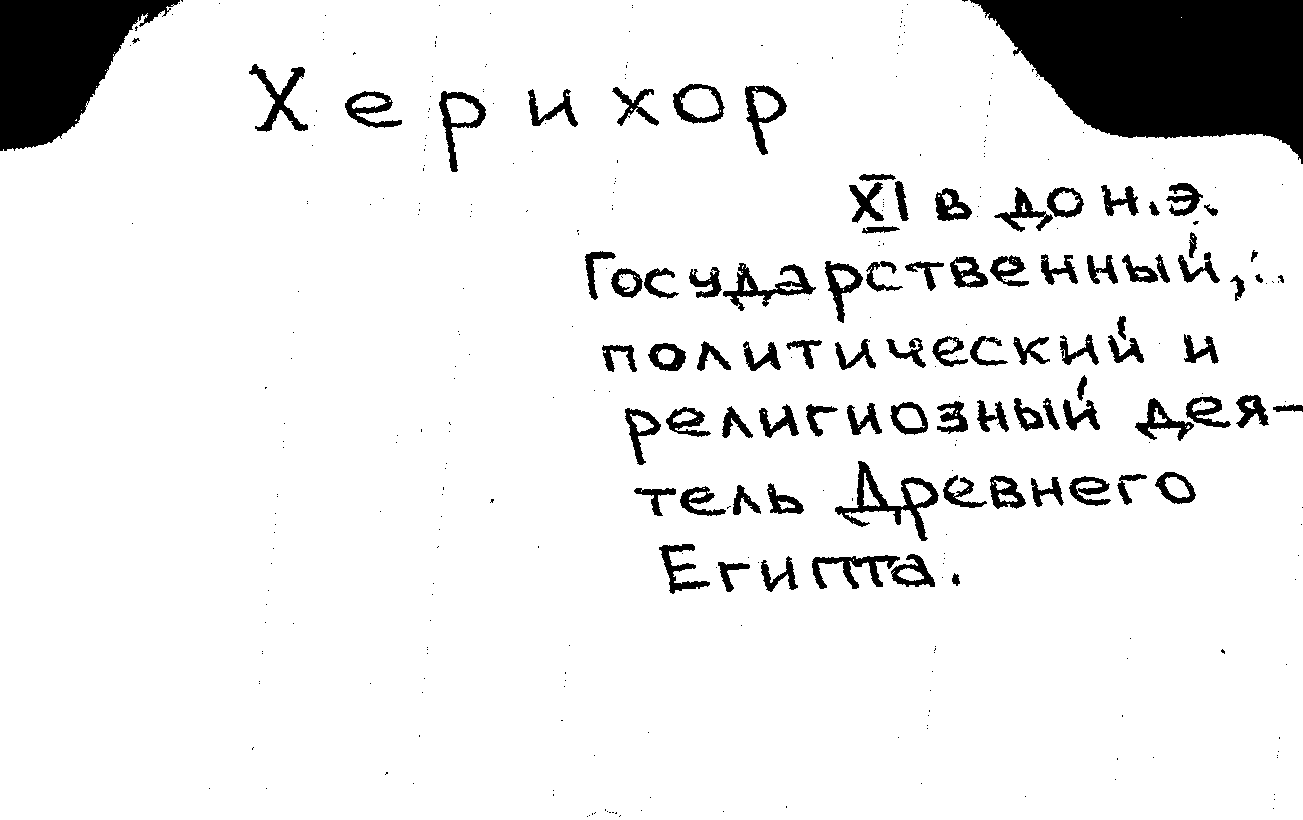 Херихор
XI в до н.э.
Государственный,
политический и
религиозный дея-
тель Древнего
Египта.